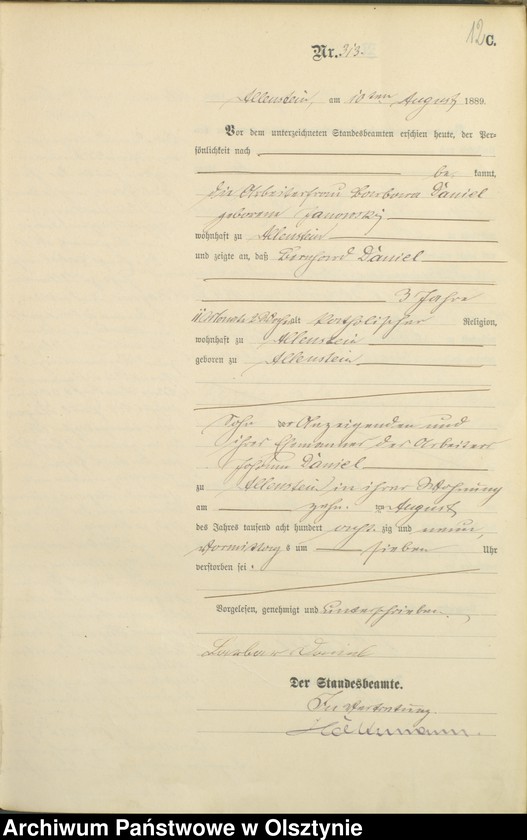 12
C.
Nr. 313.
Allenstein, am 10ten August 1889.
Vor dem unterzeichneten Standesbeamten erschien heute, der Per-
sönlichkeit nach
be kannt,
die Arbeiterfrau Barbara Daniel
geborene Janowski
wohnhaft zu Allenstein
und zeigte an, daß Bernhard Daniel
3 Jahre
11 Monate 2 Woch alt katholischer Religion,
wohnhaft zu Allenstein
geboren zu Allenstein
Sohn der Anzeigenden und
ihres Ehemannes des Arbeiters
Johann Daniel
zu Allenstein in ihrer Wohnung
am zehn ten August
des Jahres tausend acht hundert acht zig und neun,
Vormittag s um sieben Uhr
verstorben sei.
Vorgelesen, genehmigt und unterschrieben.
Barbar Daniel
Der Standesbeamte.
In Vertretung.
Archiwum Państwowe w Olsztynie